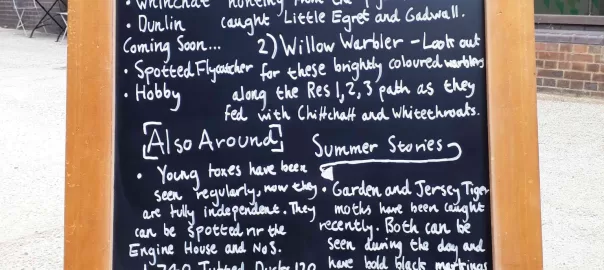 • Whinchat hunting from the
• Dunlin caught Little Egret and Gadwall.
Coming Soon...
• Spotted Flycatcher
• Hobby
2) Willow Warbler - Look out
for these brightly coloured warblers
along the Res 1, 2, 3 path as they
fed with Chiffchaff and Whitethroats.
[Also Around]
• Young foxes have been
seen regularly, now they
are fully independent. They
can be spotted nr the
Engine House and No5.
Tufted Ducks 120
Summer Stories
• Garden and Jersey Tiger
moths have been caught
recently. Both can be
seen during the day and
have bold black markings